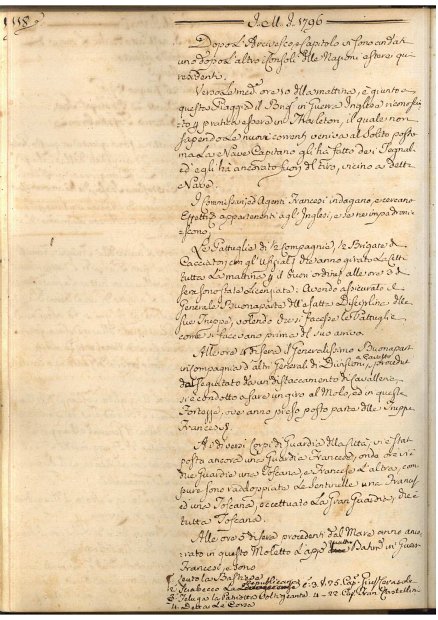 118
J. M. J. 1796
Dopo l'Arcivesco, e Capitolo vi sono andati
uno dopo l'altro i Consoli delle Nazioni estere qui
residenti.
Verso le med.e ore 10 della mattina, è giunto a
questa Piaggia il Brig. in Guerra Inglese riconosci
uto p pratica essere un Tharleton, il quale non
sapendo le nuove correnti veniva al Solito posto
ma La Nave Capitano gli hà fatto dei Segnali
ed egli hà ancorato fuori del tiro, vicino a detta
Nave.
I Commissarj, ed Agenti Francesi indagano, e cercano
Effetti appartenenti agl'Inglesi, e se ne impadroni
scono.
Le Pattuglie di 1/2 Compagnie, 1/2 Brigate di
Cacciatori, con gl'Ufiziali dte anno girato la Città
tutta La mattina p il buon ordine, alle ore 3 di
sera sono state licenziate: Avendo assicurato il
Generale Buonaparte dell'esatta Disciplina delle
sue Truppe, volendo che si facesse le Pattuglie
come si facevano prima del suo arrivo.
Alle ore 4 di Sera il Generalissimo Buonapart
in compagnia d'altri Generali di Divisioni, a Cavallo, preceduti
da, seguitato da un distaccamento di Cavalleria,
si è condotto a fare un giro al Molo, ed in queste
Fortezze, ove anno preso posto parte delle Truppe
Francesi.
A i diversi Corpi di Guardia della Città, vi è stat
posta ancora una Guardia Francese, onde vi è
due Guardie una Toscana, e Francese l'altra, com
pure sono raddoppiate le Sentinelle una Frances
ed una Toscana, eccettuato La Gran Guardia, che è
tutta Toscana.
Alle ore 5 di Sera procedenti dal Mare anno anco
rato in questo Moletto l'app.o quattro Bastim.ti in Guerra
Francesi, e sono
1. Leuto la Bastiese
2. Sciabecco La Republicana è: 3. d. 75. Cap. Gius.
3. Feluga la 4 - 22 Cap. Fran. Castellini
4. Detta Le Corse